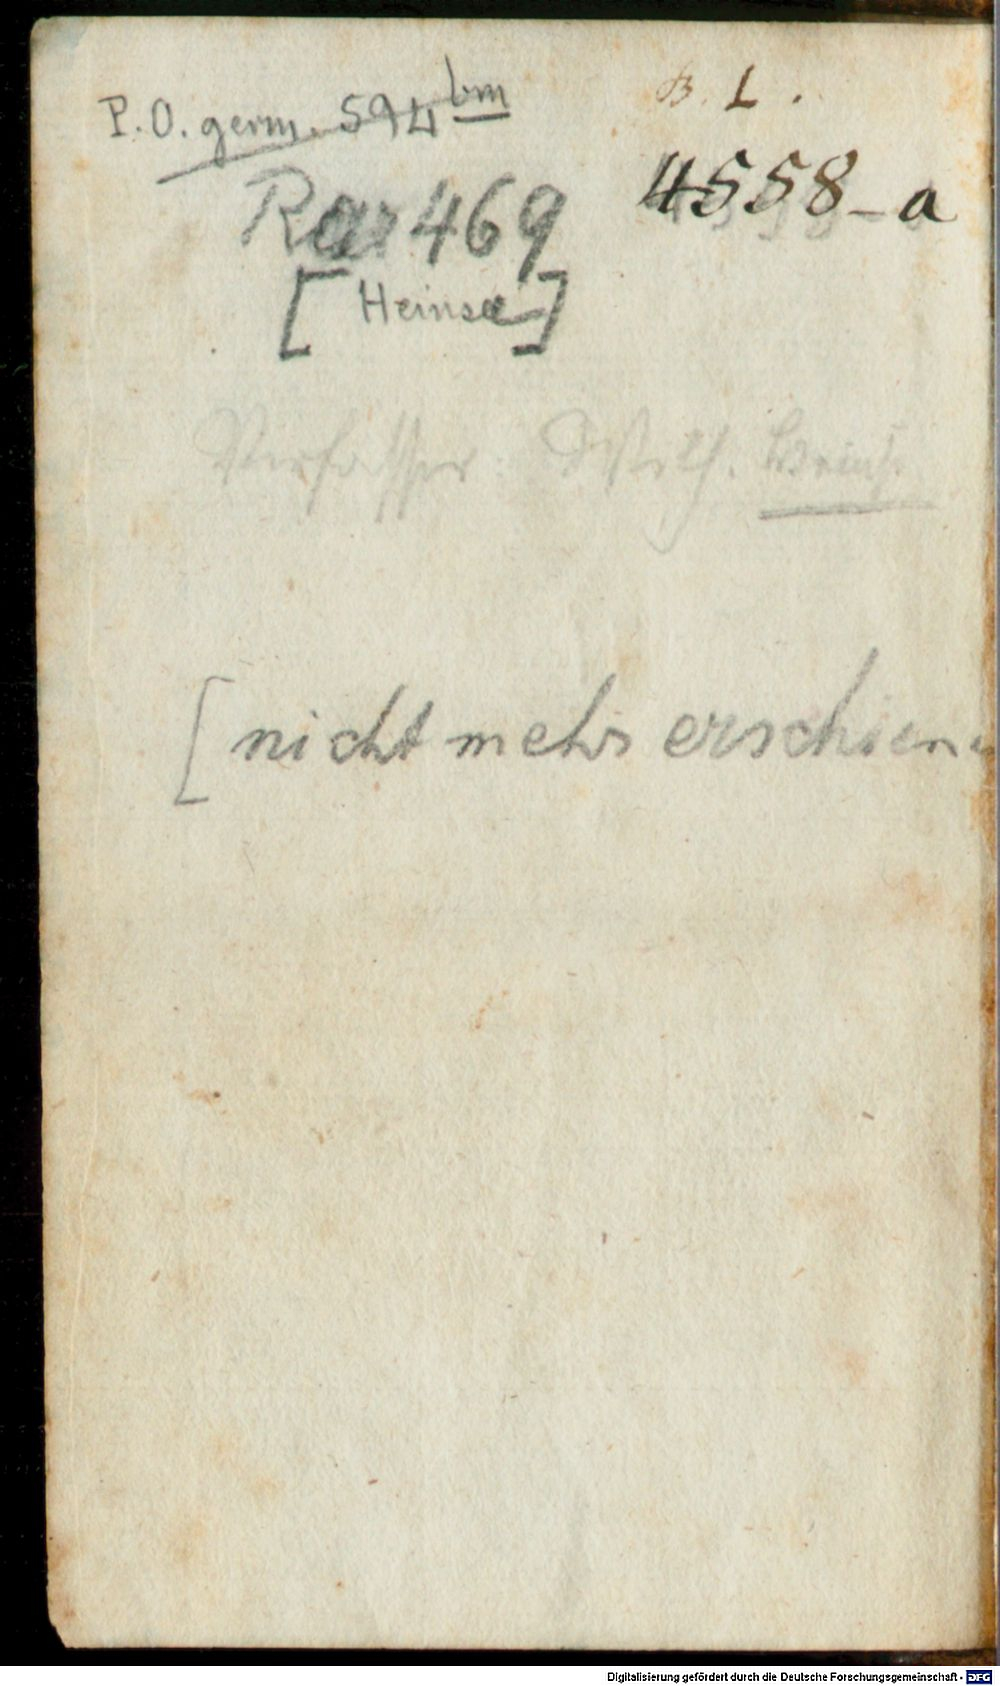 P.O. germ. 594 bm
B. L.
4558-a
Rar 469
[Heinse]
Verfasser: Wilh. Heinse
[nicht mehr erschien
Digitalisierung gefördert durch die Deutsche Forschungsgemeinschaft - DFG